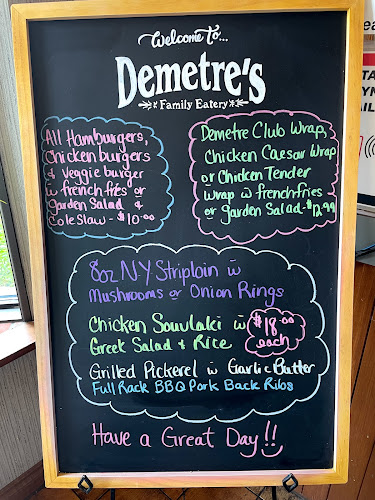 Welcome To...
Demetre's
Family Eatery
All Hamburgers,
Chicken burgers
& Veggie burger
w french fries or
Garden Salad &
Cole Slaw - $10.00
Demetre Club Wrap,
Chicken Caesar Wrap
or Chicken Tender
Wrap w french fries
or garden Salad - $12.99
8oz NY Striploin w
Mushrooms or Onion Rings
Chicken Souvlaki w
Greek Salad & Rice
$18.00
each
Grilled Pickerel w Garlic Butter
Full Rack BBQ Pork Back Ribs
Have a Great Day!!